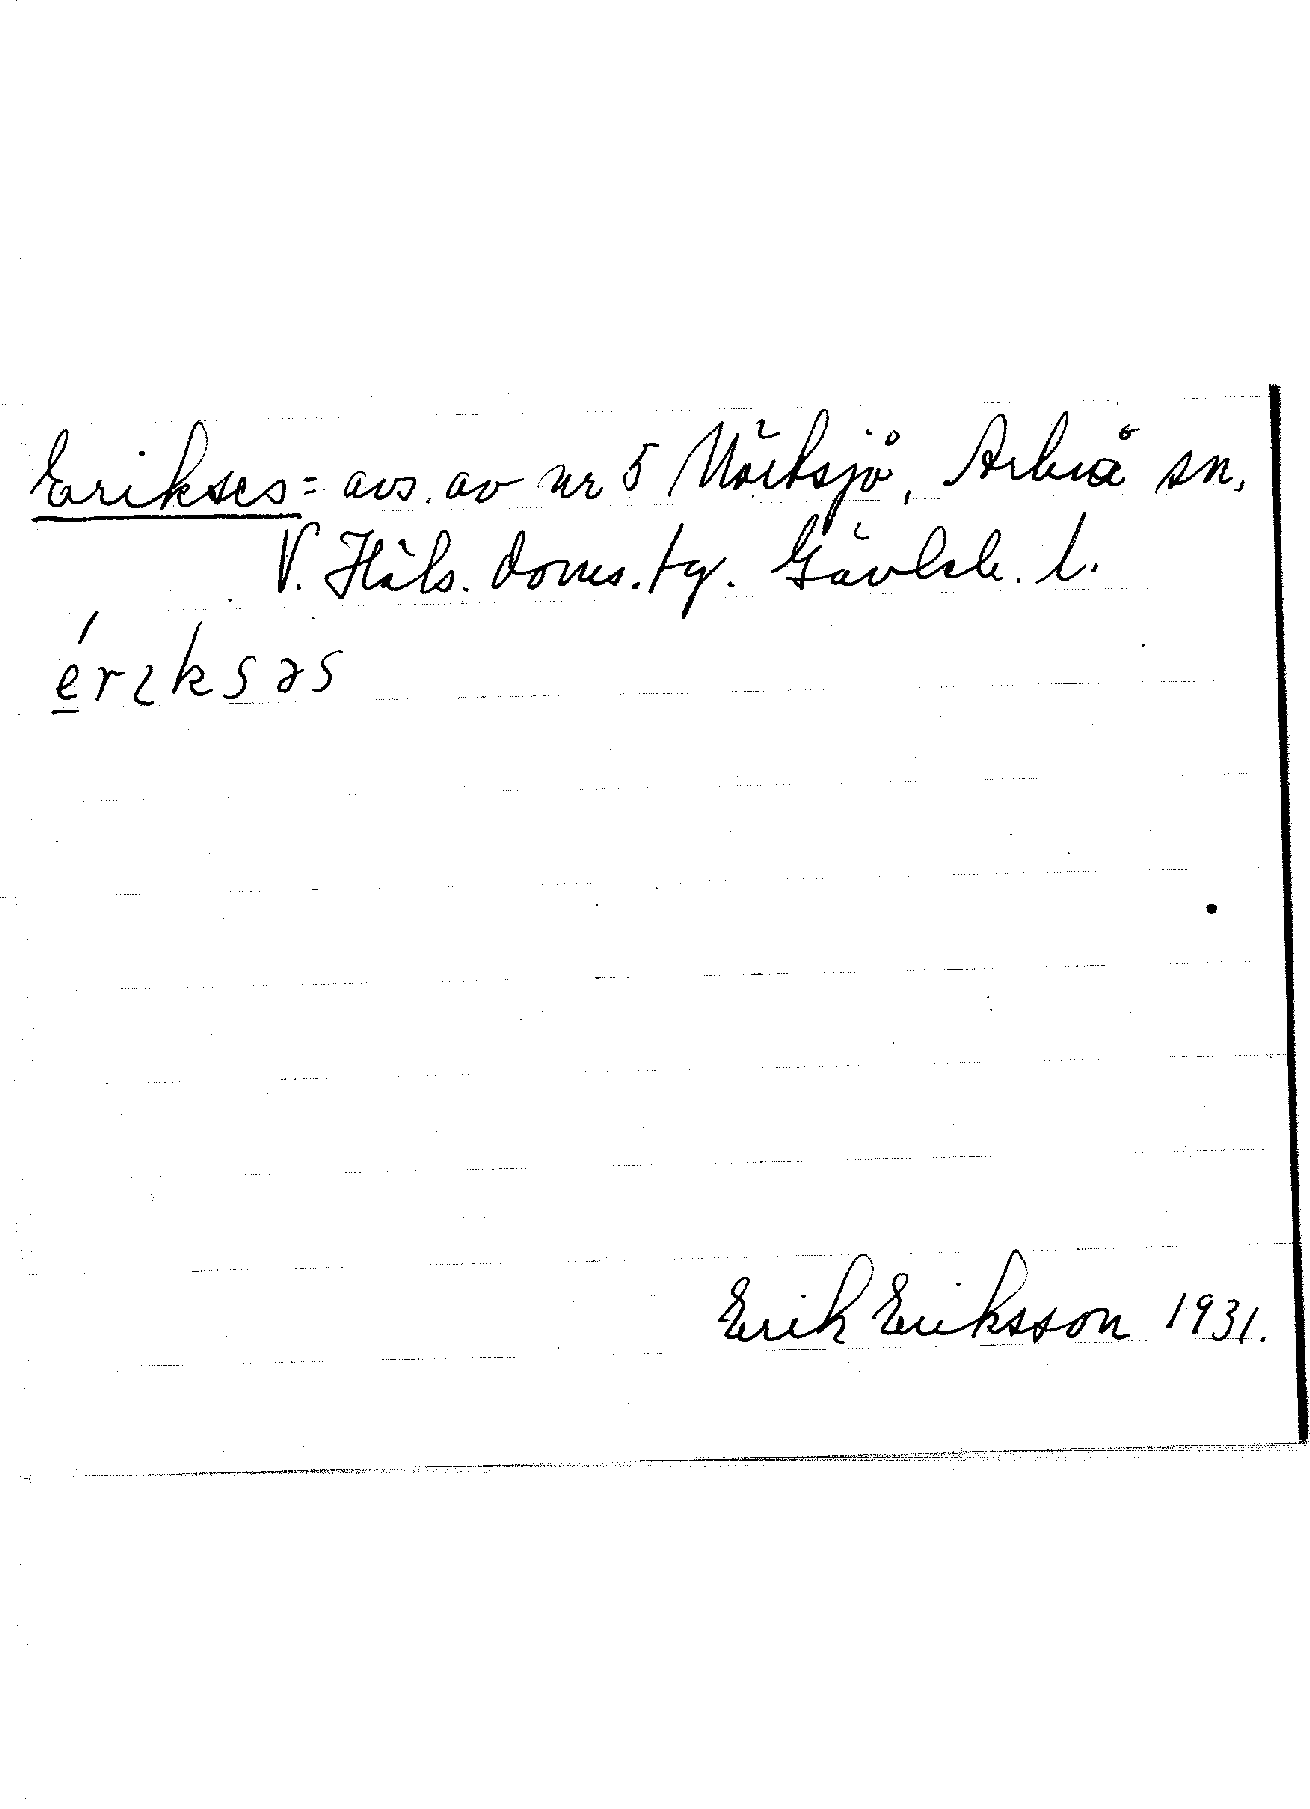 Erikses = avs. av nr 5 Mörtsjö, Arbrå sn,
V. Häls. doms. tg. Gävleb. l.
érɩksəs
Erik Eriksson 1931.